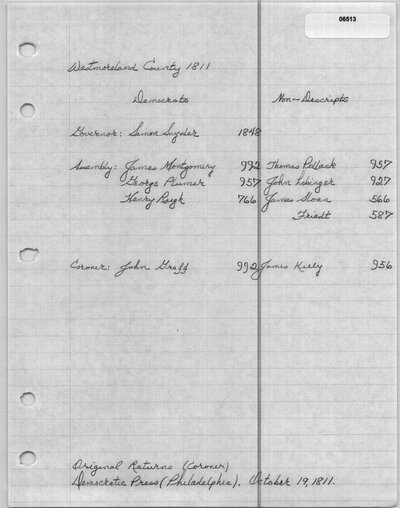 06513
Westmoreland County 1811
Democrats Non-Descripts
Governor: Simon Snyder 1848
Assembly: James Montgomery 992 Thomas Pollack 957
George Plumer 957 John Lobinger 927
Henry Reigh 766 James Sloan 566
Friedt 587
Coroner: John Graff 992 James Kelly 956
Original Returns (Coroner)
Democratic Press (Philadelphia). October 19, 1811.